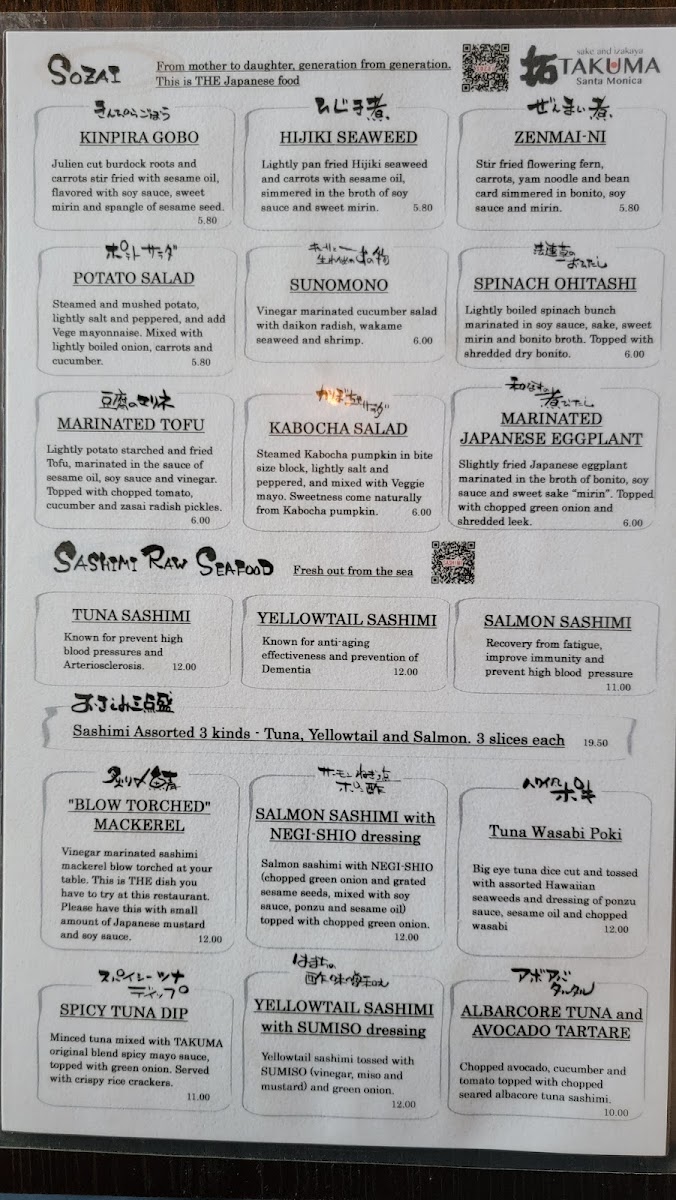 SOZAI
From mother to daughter, generation from generation.
This is THE Japanese food
sake and izakaya
拓TAKUMA
Santa Monica
きんぴらごぼう
KINPIRA GOBO
Julien cut burdock roots and
carrots stir fried with sesame oil,
flavored with soy sauce, sweet
mirin and spangle of sesame seed.
5.80
ひじき煮
HIJIKI SEAWEED
Lightly pan fried Hijiki seaweed
and carrots with sesame oil,
simmered in the broth of soy
sauce and sweet mirin. 5.80
ぜんまい煮
ZENMAI-NI
Stir fried flowering fern,
carrots, yam noodle and bean
card simmered in bonito, soy
sauce and mirin. 5.80
ポテトサラダ
POTATO SALAD
Steamed and mushed potato,
lightly salt and peppered, and add
Vege mayonnaise. Mixed with
lightly boiled onion, carrots and
cucumber. 5.80
SUNOMONO
Vinegar marinated cucumber salad
with daikon radish, wakame
seaweed and shrimp. 6.00
SPINACH OHITASHI
Lightly boiled spinach bunch
marinated in soy sauce, sake, sweet
mirin and bonito broth. Topped with
shredded dry bonito. 6.00
豆腐のマリネ
MARINATED TOFU
Lightly potato starched and fried
Tofu, marinated in the sauce of
sesame oil, soy sauce and vinegar.
Topped with chopped tomato,
cucumber and zasai radish pickles.
6.00
かぼちゃサラダ
KABOCHA SALAD
Steamed Kabocha pumpkin in bite
size block, lightly salt and
peppered, and mixed with Veggie
mayo. Sweetness come naturally
from Kabocha pumpkin. 6.00
和なすの
煮びたし
MARINATED
JAPANESE EGGPLANT
Slightly fried Japanese eggplant
marinated in the broth of bonito, soy
sauce and sweet sake “mirin”. Topped
with chopped green onion and
shredded leek. 6.00
SASHIMI RAW SEAFOOD
Fresh out from the sea
TUNA SASHIMI
Known for prevent high
blood pressures and
Arteriosclerosis. 12.00
YELLOWTAIL SASHIMI
Known for anti-aging
effectiveness and prevention of
Dementia 12.00
SALMON SASHIMI
Recovery from fatigue,
improve immunity and
prevent high blood pressure
11.00
おさしみ三点盛
Sashimi Assorted 3 kinds - Tuna, Yellowtail and Salmon. 3 slices each 19.50
炙り〆鯖
"BLOW TORCHED"
MACKEREL
Vinegar marinated sashimi
mackerel blow torched at your
table. This is THE dish you
have to try at this restaurant.
Please have this with small
amount of Japanese mustard
and soy sauce. 12.00
サーモンねぎ塩
ポン酢
SALMON SASHIMI with
NEGI-SHIO dressing
Salmon sashimi with NEGI-SHIO
(chopped green onion and grated
sesame seeds, mixed with soy
sauce, ponzu and sesame oil)
topped with chopped green onion.
12.00
ハワイアンポキ
Tuna Wasabi Poki
Big eye tuna dice cut and tossed
with assorted Hawaiian
seaweeds and dressing of ponzu
sauce, sesame oil and chopped
wasabi 12.00
スパイシーツナ
ディップ
SPICY TUNA DIP
Minced tuna mixed with TAKUMA
original blend spicy mayo sauce,
topped with green onion. Served
with crispy rice crackers.
11.00
はまちの
酢味噌和え
YELLOWTAIL SASHIMI
with SUMISO dressing
Yellowtail sashimi tossed with
SUMISO (vinegar, miso and
mustard) and green onion.
12.00
タルタル
ALBARCORE TUNA and
AVOCADO TARTARE
Chopped avocado, cucumber and
tomato topped with chopped
seared albacore tuna sashimi.
10.00